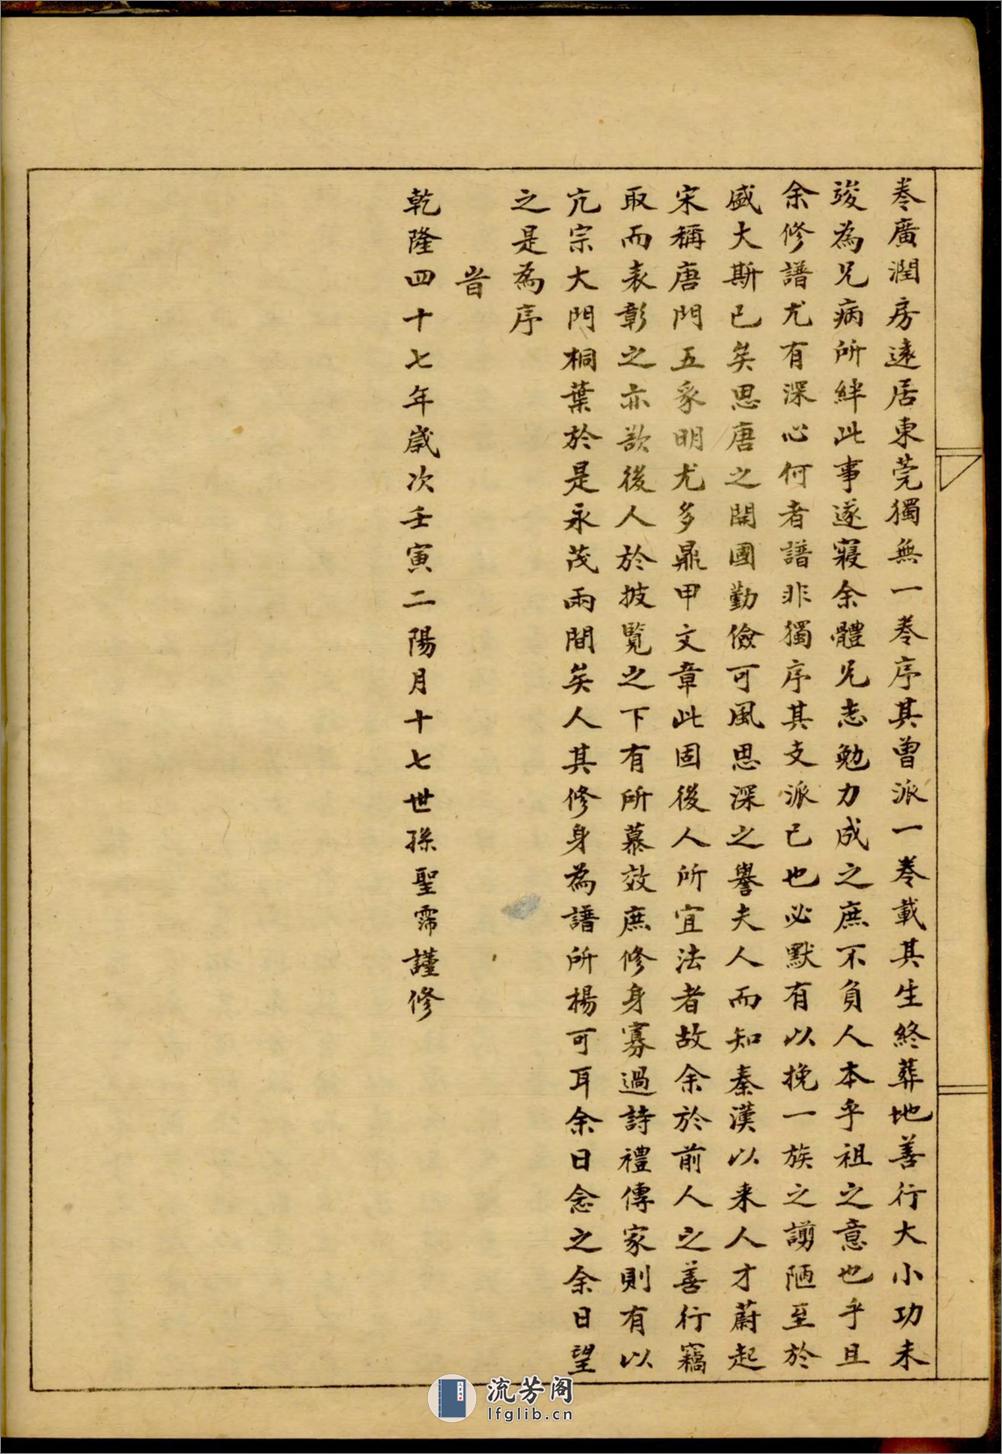 卷廣潤房遠居東莞獨無一卷序其曾派一卷載其生終葬地善行大小功未
竣為兄病所絆此事遂寢余體兄志勉力成之庶不負人本乎祖之意也乎且
余修譜尤有深心何者譜非獨序其支派已也必默有以挽一族之謭陋至於
盛大斯已矣思唐之開國勤儉可風思深之譽夫人而知秦漢以来人才蔚起
宋稱唐門五豸明尤多鼎甲文章此固後人所宜法者故余於前人之善行竊
取而表彰之亦欲後人於披覽之下有所慕效庶修身寡過詩禮傳家則有以
亢宗大門桐葉於是永茂兩間矣人其修身為譜所楊可耳余日念之余日望
之是為序
旹
乾隆四十七年歲次壬寅二陽月十七世孫聖霈謹修
流芳阁
lfglib.cn